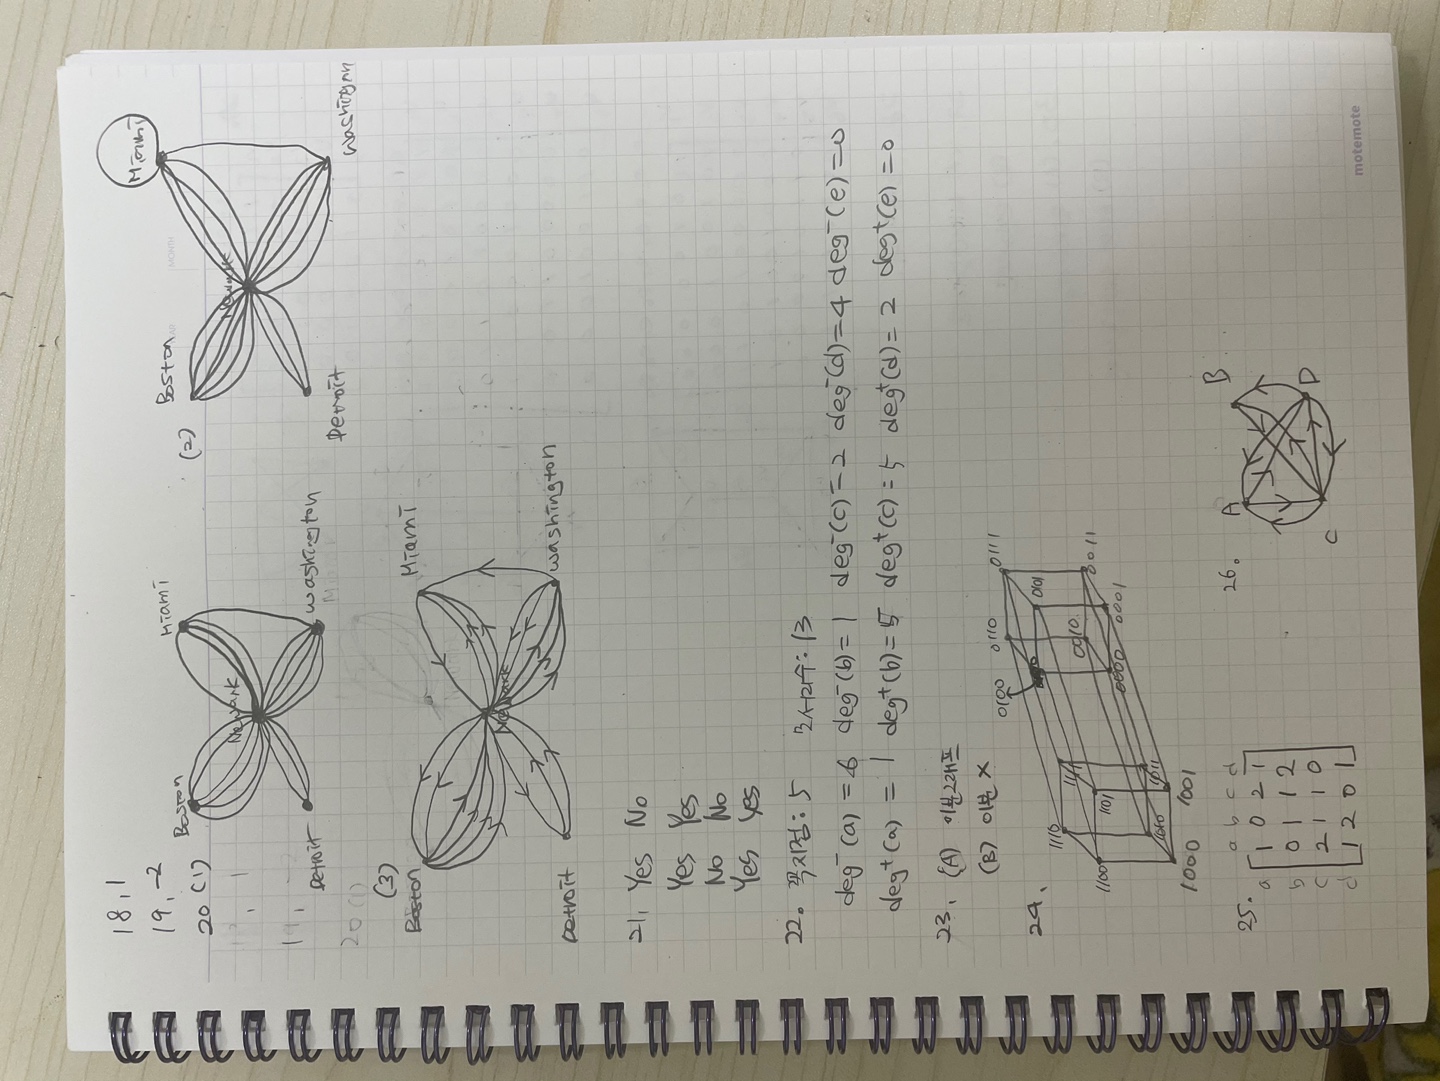 18, 1
19, -2
20 (1)
Boston
Miami
Newark
Detroit
Washington
(2)
Boston
Miami
Newark
Detroit
(3)
Boston
Miami
Newark
Detroit
Washington
21, Yes No
Yes Yes
No No
Yes Yes
22. 꼭지점: 5 모서리수: 13
deg⁻(a) = 6 deg⁻(b) = 1 deg⁻(c) = 2 deg⁻(d) = 4 deg⁻(e) = 0
deg⁺(a) = 1 deg⁺(b) = 5 deg⁺(c) = 5 deg⁺(d) = 2 deg⁺(e) = 0
23, (A) 이분그래프
(B) 이분 X
24,
0110 0111
0100 0101
0010 0011
0000 0001
1110
1100 1101
1010 1011
1000 1001
25.
a b c d
a 1 0 2 1
b 0 1 1 2
c 2 1 1 0
d 1 2 0 1
26.
A B
C D
motemote